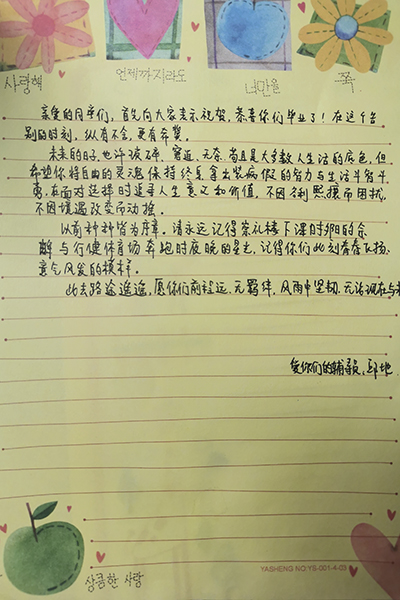 사랑해
언제까지라도
너만을
쭉.
亲爱的同学们,首先向大家表示祝贺,恭喜你们毕业了!在这个告
别的时刻,纵有不舍,更有希冀。
未来的日子也许破碎、窘迫、无奈、苟且是大多数人生活的底色,但
希望你将自由的灵魂保持终身,拿出装病假的智力与生活斗智斗
勇,在面对选择时追寻人生意义和价值,不因名利熙攘而困扰,
不因境遇改变而动摇。
以前种种皆为序章,请永远记得崇礼楼下课时夕阳的余
晖与行健体育场奔跑时夜晚的星光,记得你们此刻青春飞扬、
意气风发的模样。
此去路途遥遥,愿你们前程远,无羁绊,风雨中坚韧,无论现在与
爱你们的辅导员、邱地
YASHENG NO:YS-001-4-03
상큼한 사랑